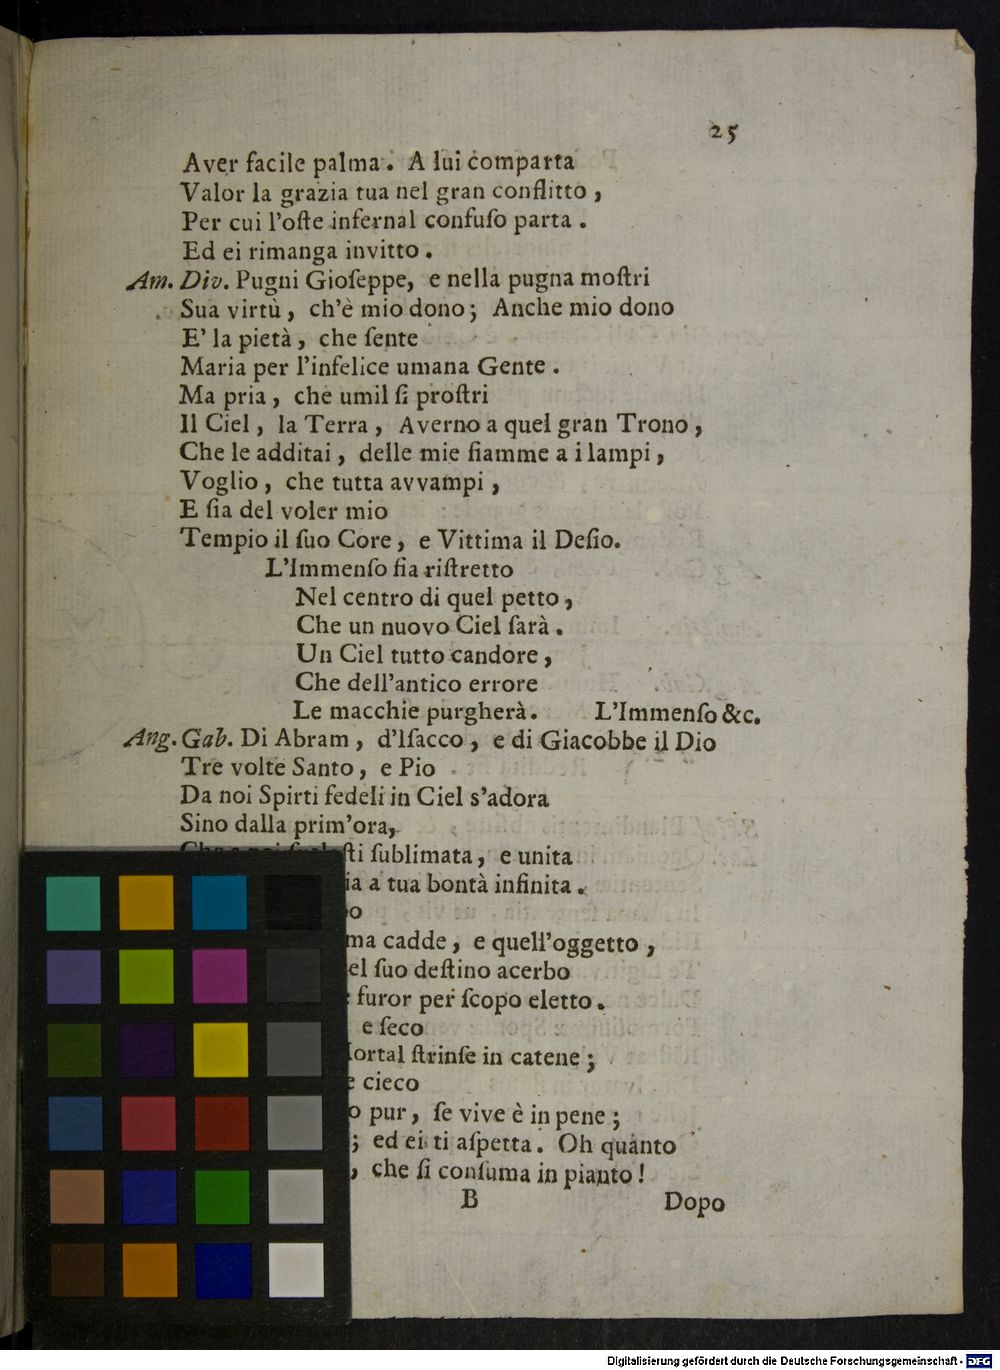 25
Aver facile palma. A lui comparta
Valor la grazia tua nel gran conflitto,
Per cui l'oſte infernal confuſo parta.
Ed ei rimanga invitto.
Am. Div. Pugni Gioſeppe, e nella pugna moſtri
Sua virtù, ch'è mio dono; Anche mio dono
E' la pietà, che ſente
Maria per l'infelice umana Gente.
Ma pria, che umil ſi proſtri
Il Ciel, la Terra, Averno a quel gran Trono,
Che le additai, delle mie fiamme a i lampi,
Voglio, che tutta avvampi,
E ſia del voler mio
Tempio il ſuo Core, e Vittima il Deſio.
L'Immenſo ſia riſtretto
Nel centro di quel petto,
Che un nuovo Ciel ſarà.
Un Ciel tutto candore,
Che dell'antico errore
Le macchie purgherà. L'Immenſo &c.
Ang. Gab. Di Abram, d'Iſacco, e di Giacobbe il Dio
Tre volte Santo, e Pio
Da noi Spirti fedeli in Ciel s'adora
Sino dalla prim'ora,
ſublimata, e unita
a tua bontà infinita.
cadde, e quell'oggetto,
ſuo deſtino acerbo
furor per ſcopo eletto.
e ſeco
ſtrinſe in catene;
cieco
pur, ſe vive è in pene;
; ed ei ti aſpetta. Oh quanto
, che ſi conſuma in pianto!
B Dopo
Digitalisierung gefördert durch die Deutsche Forschungsgemeinschaft - DFG